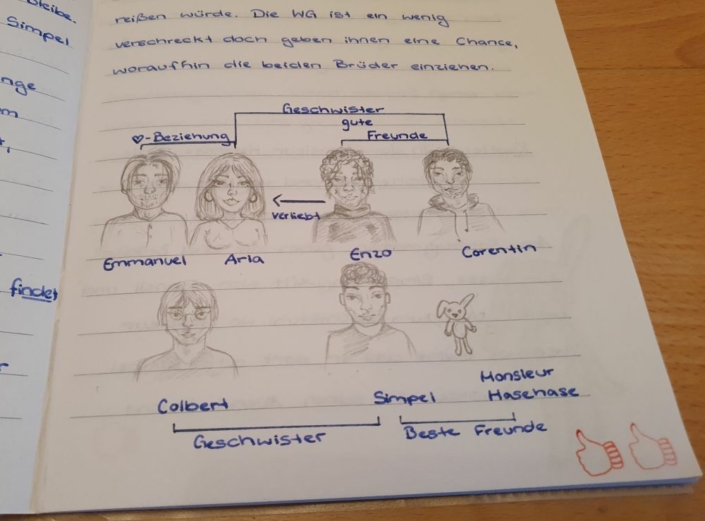 bleibe.
Simpel
nge
m
findet
reißen würde. Die WG ist ein wenig
verschreckt doch geben ihnen eine Chance,
woraufhin die beiden Brüder einziehen.
Geschwister
gute
♡-Beziehung Freunde
verliebt
Emmanuel Aria Enzo Corentin
Monsieur
Colbert Simpel Hasehase
Geschwister Beste Freunde